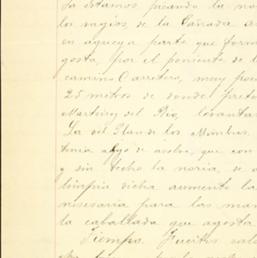 la estamos picando la no
los ragios de la Cañada a
en aqueya parte que form
gosta, por el poniente de l
camino Carretero, muy poc
25 metros de donde prete
Martinez del Rio, levantar
La del Plan de los Mimbres
tenia algo de asolve, que con
y sin techo la noria, se
limpia dicha aumento la
nisesaria para las man
la caballada que agosta
Tiempo. Fuertes